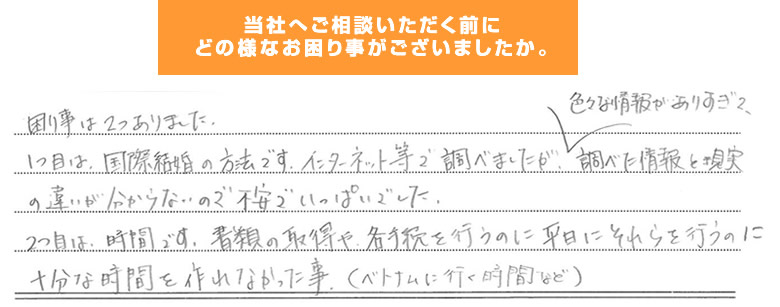 当社へご相談いただく前に
どの様なお困り事がございましたか。
色々な情報がありすぎて、
困り事は2つありました。
1つ目は、国際結婚の方法です。インターネット等で調べましたが、調べた情報と現実
の違いが分からないので不安でいっぱいでした。
2つ目は、時間です。書類の取得や、各手続を行うのに平日にそれらを行うのに
十分な時間を作れなかった事。(ベトナムに行く時間など)